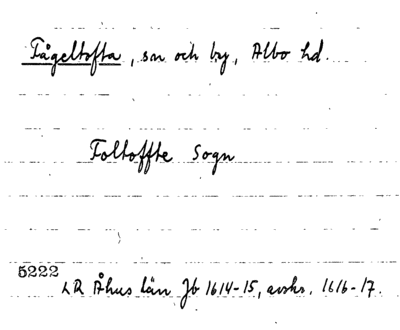 Fågeltofta, sn och by, Albo hd.
Foltoffte Sogn
5222
LR Åhus län Jb 1614-15, avskr. 1616-17.